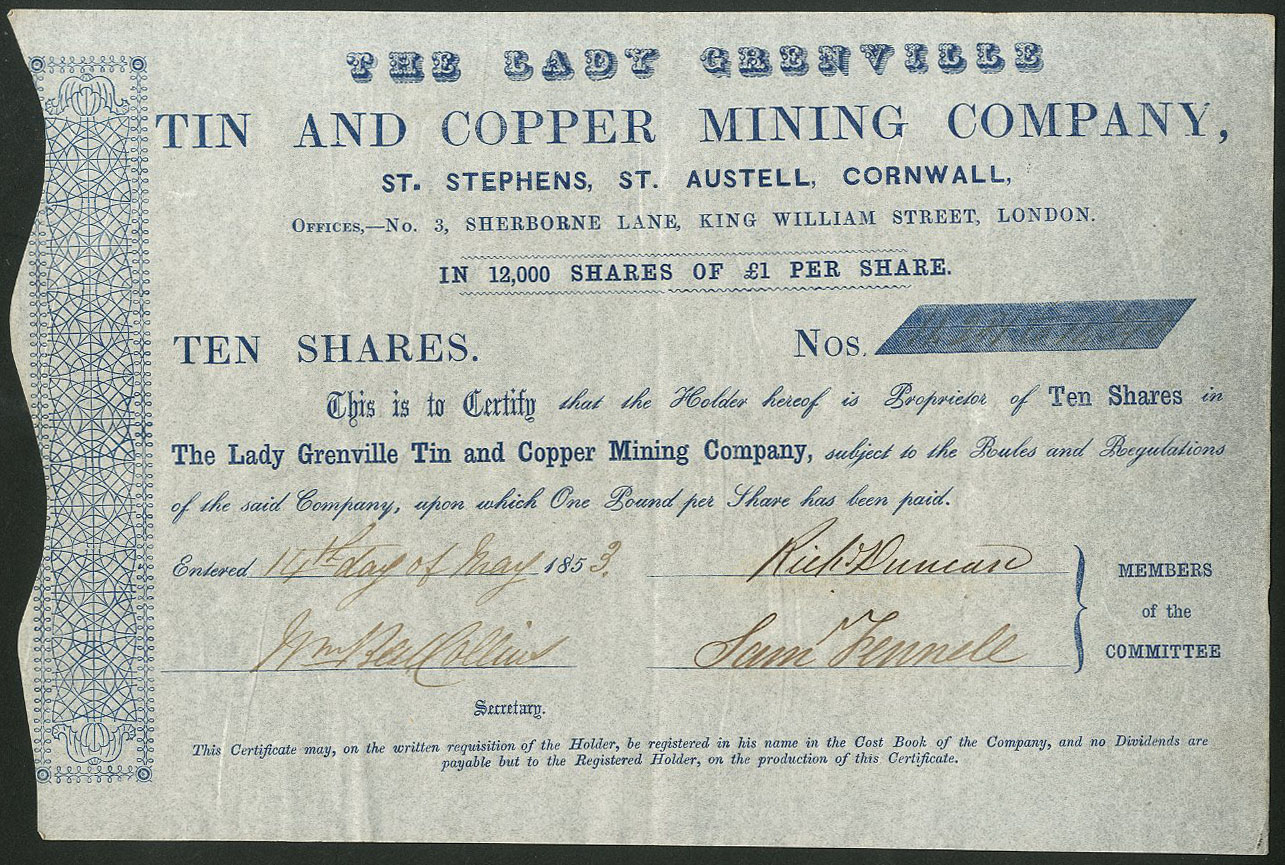 THE LADY GRENVILLE
TIN AND COPPER MINING COMPANY,
ST. STEPHENS, ST. AUSTELL, CORNWALL,
OFFICES,—No. 3, SHERBORNE LANE, KING WILLIAM STREET, LONDON.
IN 12,000 SHARES OF £1 PER SHARE.
TEN SHARES. Nos.
This is to Certify that the Holder hereof is Proprietor of Ten Shares in
The Lady Grenville Tin and Copper Mining Company, subject to the Rules and Regulations
of the said Company, upon which One Pound per Share has been paid.
Entered 14th day of May 1853. Richd Duncan
MEMBERS
of the
COMMITTEE
Wm Collins Sam Fennell
Secretary.
This Certificate may, on the written requisition of the Holder, be registered in his name in the Cost Book of the Company, and no Dividends are
payable but to the Registered Holder, on the production of this Certificate.